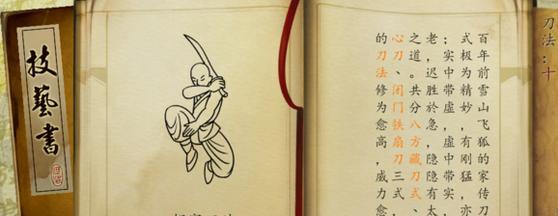 技藝書
刀法：十
百年前雪山飞狐的家传刀
式极为精妙，有刚猛，亦
；实中带虚，虚中带实，
老，迟胜於急，隐隐有太
之道。共分八方藏刀式、
心刀、闭门铁扇刀三式
的刀法修为愈高，威力愈